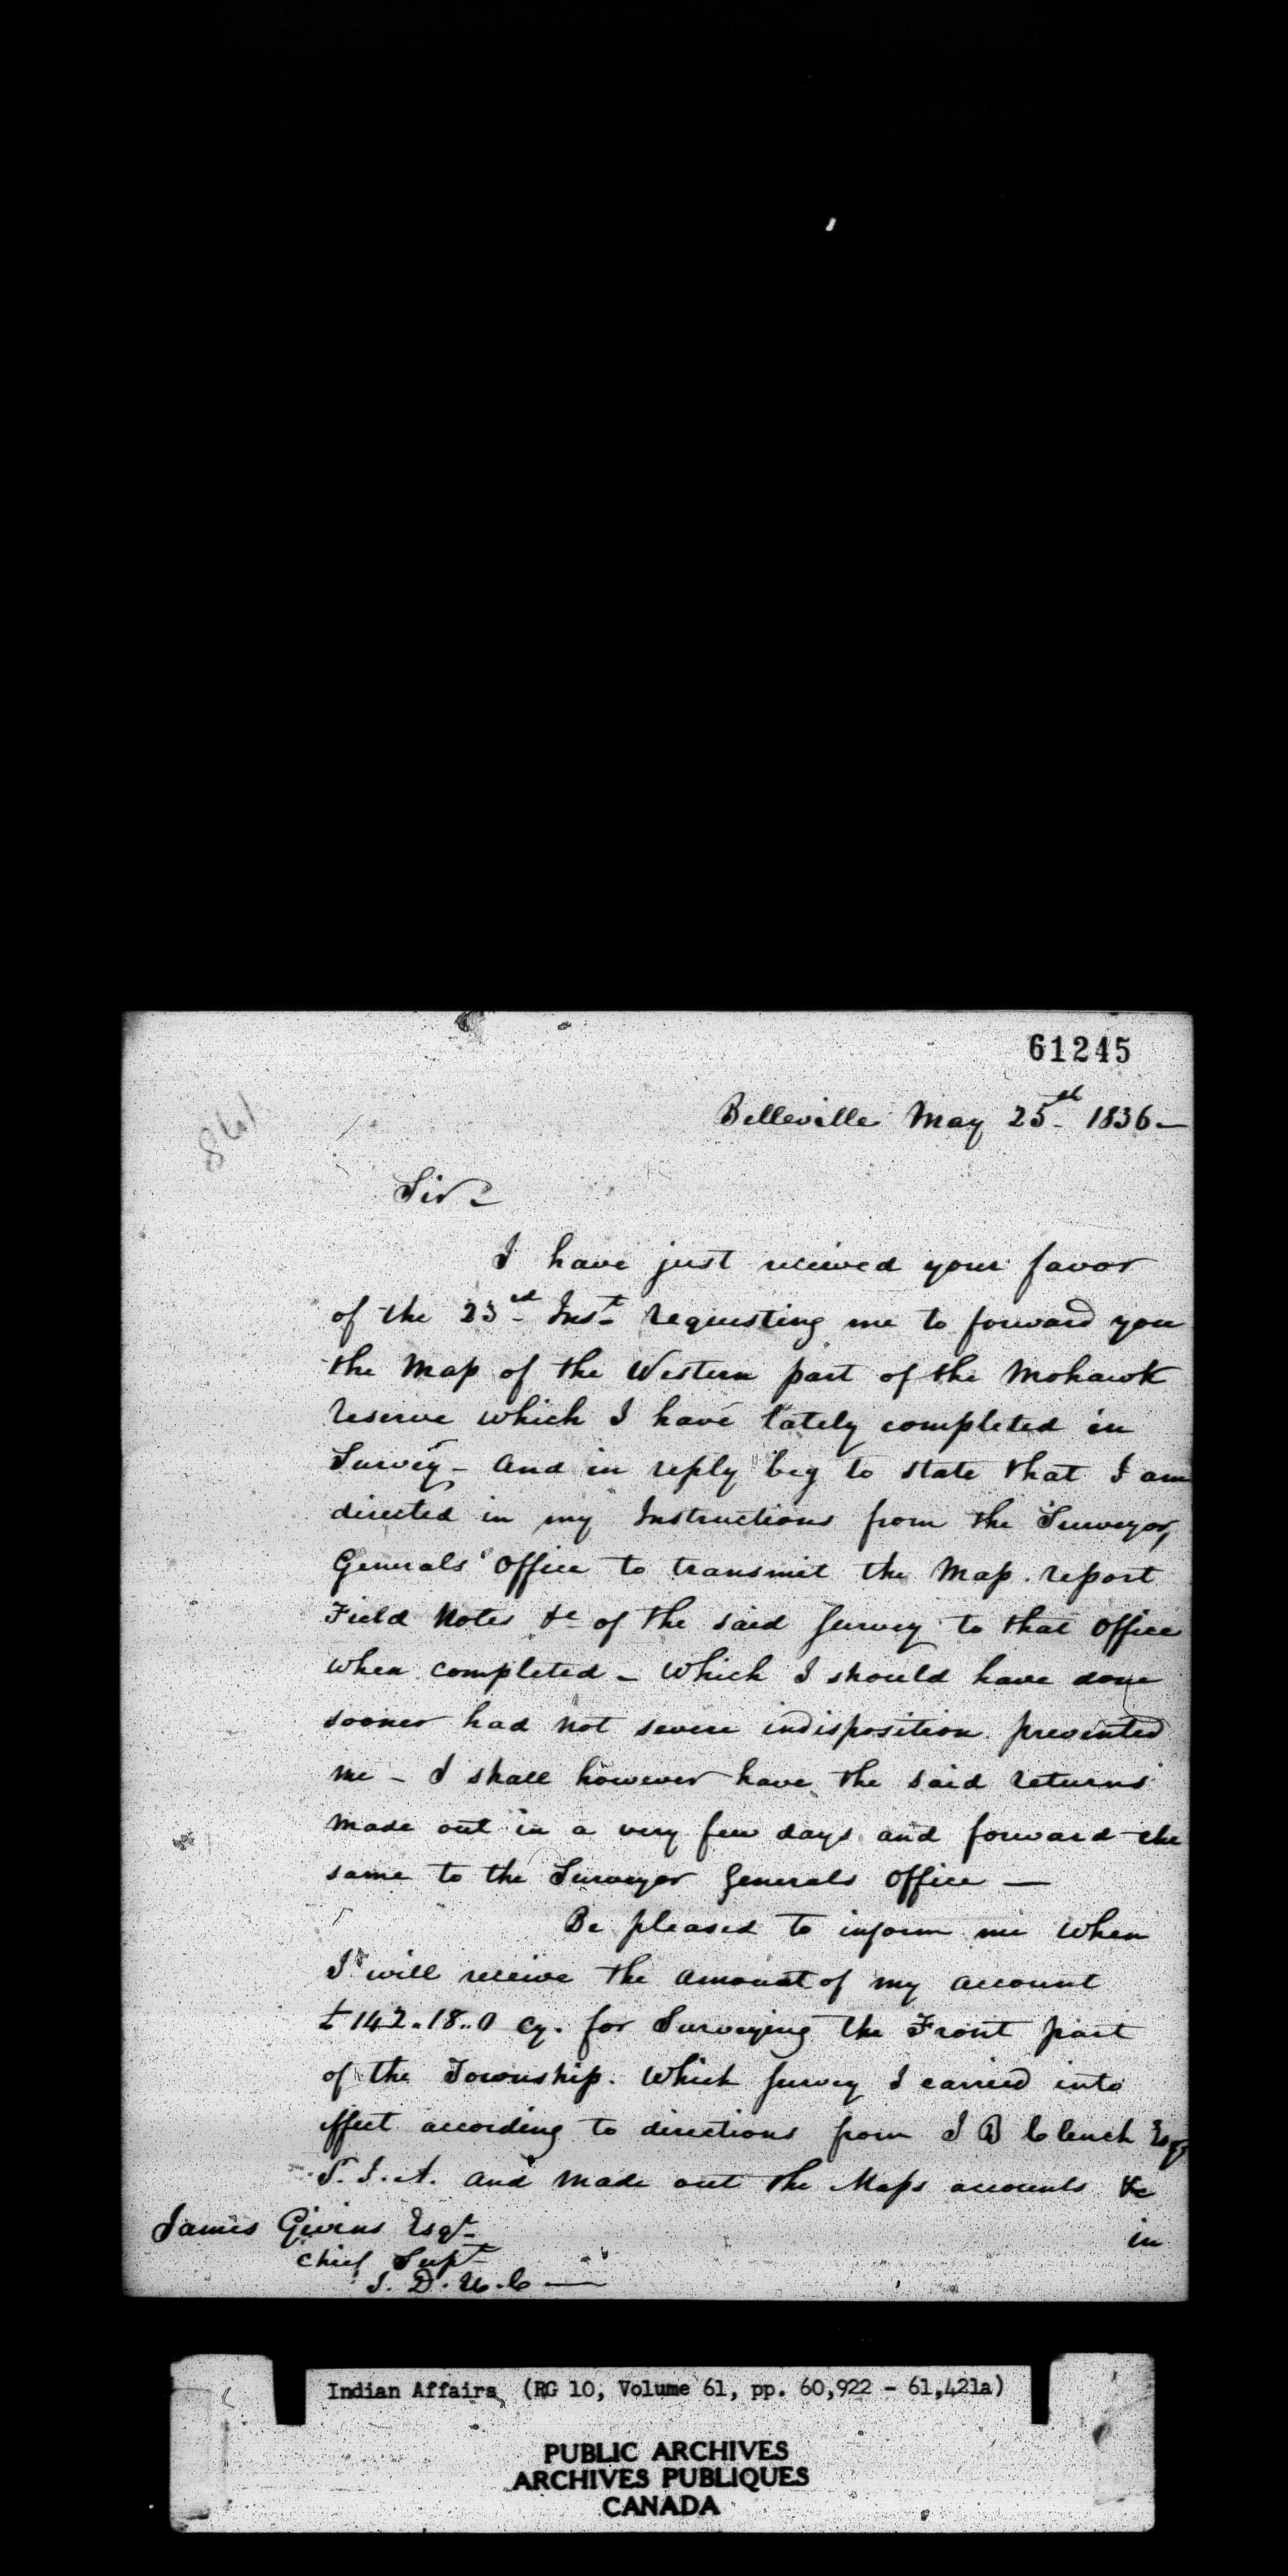 61245
861
Belleville May 25th 1836 —
Sir —
I have just received your favor
of the 23rd Inst requesting me to forward you
the Map of the Western part of the Mohawk
reserve which I have lately completed in
Survey – and in reply beg to state that I am
directed in my Instructions from the Surveyor
Generals' Office to transmit the Map. report
Field Notes &c of the said Survey to that office
when completed – which I should have done
sooner had not severe indisposition prevented
me – I shall however have the said returns
made out in a very few days and forward the
same to the Surveyor Generals Office —
Be pleased to inform me when
I will receive the amount of my account
£142..18..0 cy. for Surveying the Front part
of the Township. Which Survey I carried into
effect according to directions from J B Clench Esqr
S. I. A. and made out the Maps accounts &c
in
James Givins Esqr
Chief Supt
I. D. U. C —
Indian Affairs (RG 10, Volume 61, pp. 60,922 - 61,421a)
PUBLIC ARCHIVES
ARCHIVES PUBLIQUES
CANADA